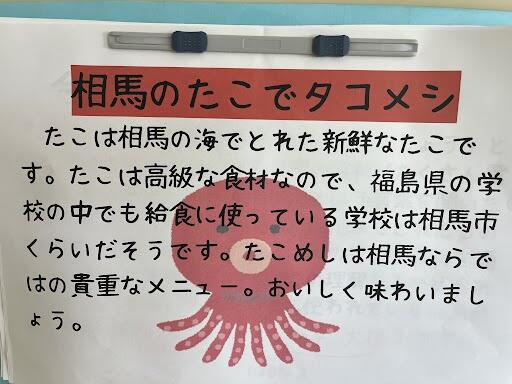 相馬のたこでタコメシ
たこは相馬の海でとれた新鮮なたこで
す。たこは高級な食材なので、福島県の学
校の中でも給食に使っている学校は相馬市
くらいだそうです。たこめしは相馬ならで
はの貴重なメニュー。おいしく味わいまし
ょう。